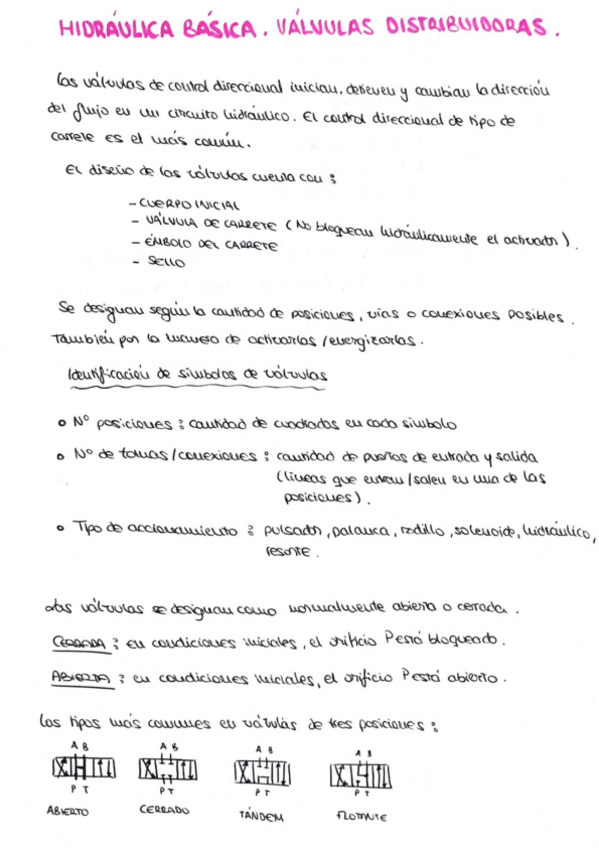 HIDRÁULICA BÁSICA. VÁLVULAS DISTRIBUIDORAS.
Las válvulas de control direccional inician, detienen y cambian la dirección
del flujo en un circuito hidráulico. El control direccional de tipo de
carrete es el más común.
El diseño de las válvulas cuenta con:
- CUERPO INICIAL
- VÁLVULA DE CARRETE (No bloquean hidráulicamente el actuador).
- ÉMBOLO DEL CARRETE
- SELLO
Se designan según la cantidad de posiciones, vías o conexiones posibles.
También por la manera de activarlas/energizarlas.
Identificación de símbolos de válvulas
Nº posiciones: cantidad de cuadrados en cada símbolo
Nº de tomas/conexiones: cantidad de puertos de entrada y salida
(líneas que entran/salen en una de las
posiciones).
Tipo de accionamiento: pulsador, palanca, rodillo, solenoide, hidráulico,
resorte.
Las válvulas se designan como normalmente abierta o cerrada.
CERRADA: en condiciones iniciales, el orificio P está bloqueado.
ABIERTA: en condiciones iniciales, el orificio P está abierto.
Los tipos más comunes en válvulas de tres posiciones:
A B A B A B A B
P T P T P T P T
ABIERTO CERRADO TÁNDEM FLOTANTE